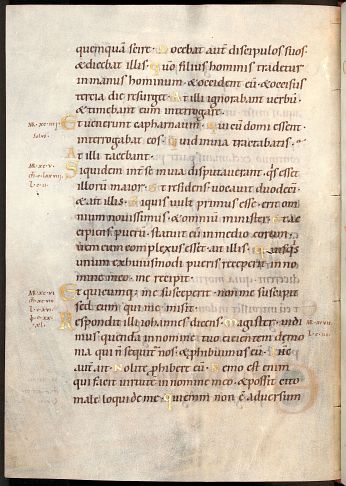 quemquā scire · Docebat aut̄ discipulos suos ·
& dicebat illis · Quō filius hominis tradetur
in manus hominum · & occident eū · & occisus
tercia die resurget · At illi ignorabant verbū ·
& timebant eum interrogare ·
Et venerunt capharnaum · Qui cū domi essent
interrogabat eos · Quid in via tractabatis ·
At illi tacebant ·
Siquidem int̄ se in via disputaverant · q̄s esset
illorū maior · Et residens vocavit duodecī
& ait illis · Si quis vult primus esse · erit om
nium novissimus · & omniū minister · Et ac
cipiens puerū · statuit eū in medio eorum ·
Quem cum complexus esset · ait illis · Quisq̄s
unum ex huiusmodi pueris receperit in no
mine meo · me recipit ·
Et quicumque me susceperit · non me suscipit
sed eum qui me misit ·
Respondit illi iohannes dicens · Magister · vidi
mus quendā in nomine tuo eicientem demo
nia qui n̄ sequit̄ nos · & phibuimus eū · Ihc̄
aut̄ ait · Nolite phibere eū · Nemo est enim
qui faciat virtutē in nomine meo · & possit cito
male loqui de me · Qui enim non ē adversum